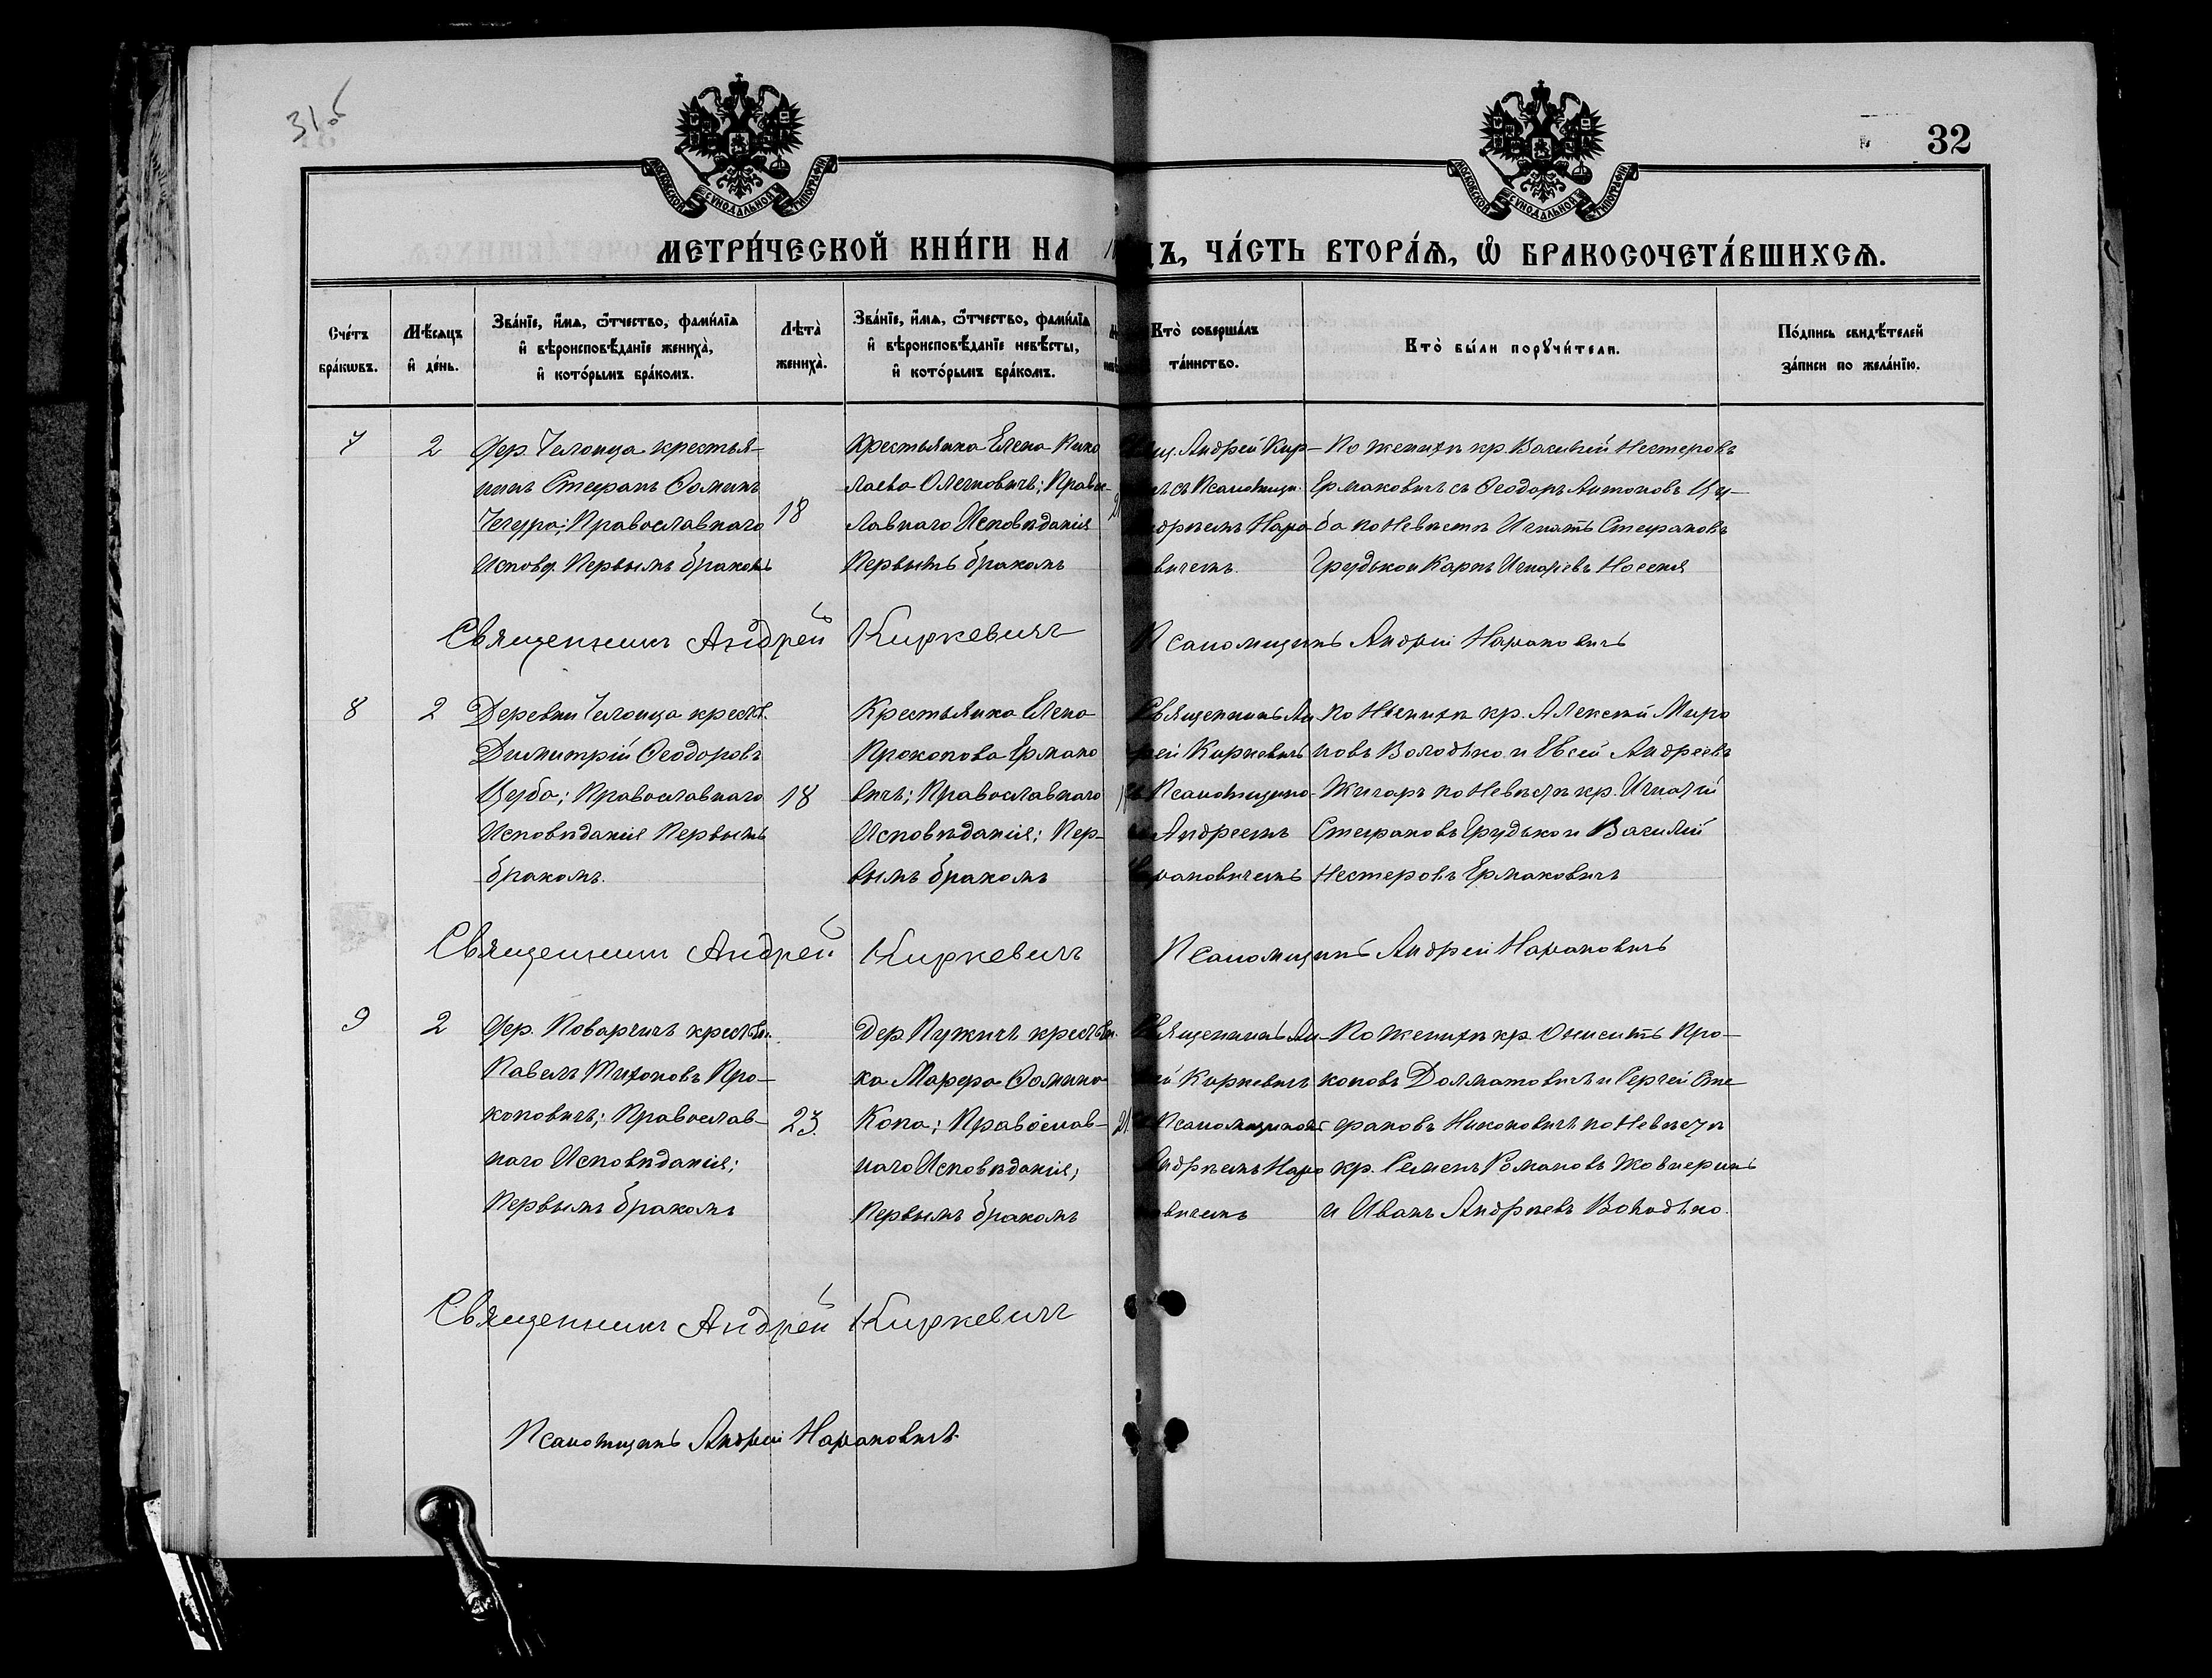 31 об
32
МОСКОВСКОЙ СѴНОДАЛЬНОЙ ТИПОГРАФІИ
МОСКОВСКОЙ СѴНОДАЛЬНОЙ ТИПОГРАФІИ
МЕТРИ́ЧЕСКОЙ КНИ́ГИ НА
ДЪ, ЧА́СТЬ ВТОРА́Ѧ, Ѡ҆ БРАКОСОЧЕТА́ВШИХСѦ.
Сче́тъ
бра́кѡвъ.
Мѣ́сѧцъ
и҆ де́нь.
Зва́нїе, и҆́мѧ, ѻ҆́тчество, фами́лїѧ
и҆ вѣроисповѣ́данїе жениха̀,
и҆ кото́рымъ бра́комъ.
Лѣта̀
жениха̀.
Зва́нїе, и҆́мѧ, ѻ҆́тчество, фами́лїѧ
и҆ вѣроисповѣ́данїе невѣ́сты,
и҆ кото́рымъ бра́комъ.
Кто̀ соверша́лъ
та́инство.
Кто̀ бы́ли порꙋчи́тели.
По́дпись свидѣ́телей
за́писи по жела́нїю.
7
2
Дер. Челонца крестья-
нинъ Стефанъ Ѳоминъ
Чечура; Православнаго
Исповѣд. Первымъ бракомъ
18
Крестьянка Елена Нико
лаева Олехновичъ; Право-
славнаго Исповѣданія
Первымъ бракомъ
Свящ. Андрей Кир-
съ Псаломщи.
Андреемъ Нара
вичемъ.
По женихѣ кр. Василій Нестеровъ
Ермаковичъ съ Ѳеодоръ Антоновъ Цу-
ба по Невѣстѣ Игнатъ Стефановъ
Грудько и Карпъ Игнатевъ
Священникъ Андрей Киркевичъ
Псаломщикъ Андрей Нарановичъ
8
2
Деревни Челонца крест.
Димитрій Ѳеодоровъ
Цуба; Православнаго
Исповѣданія Первымъ
бракомъ.
18
Крестьянка Елена
Прокопова Ермако
вичъ; Православнаго
Исповѣданія; Пер-
вымъ бракомъ
Священникъ Ан
рей Киркевичъ
Псаломщико-
Андреемъ
рановичемъ
По Женихѣ кр. Алексѣй Миро
новъ Володько и Евсей Андреевъ
Жигаръ по Невѣстѣ кр. Игнатій
Стефановъ Грудько и Василій
Нестеровъ Ермаковичъ
Священникъ Андрей Киркевичъ
Псаломщикъ Андрей Нарановичъ
9
2
Дер. Поварчичъ крестьян.
Павелъ Тихоновъ Про-
коповичъ; Православ-
наго Исповѣданія;
Первымъ бракомъ
23.
Дер. Пужичъ крестьян.
ка Марфа Ѳомина
Копа; Православ-
наго Исповѣданія;
Первымъ бракомъ
21
Священникъ Ан-
рей Киркевичъ
Псаломщикомъ
Андреемъ Нара
новичемъ
По женихѣ кр. Онисимъ Про-
коповъ Долматовичъ и Сергей Сте
фановъ Никоновичъ по Невѣстѣ
кр. Семенъ Романовъ Жовнерикъ
и Иванъ Андреевъ Володько.
Священникъ Андрей Киркевичъ
Псаломщикъ Андрей Нарановичъ